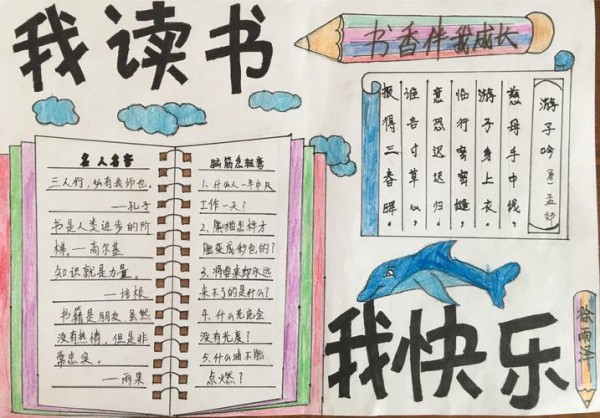 我读书
书香伴我成长
游子吟 (唐) 孟郊
慈母手中线，
游子身上衣。
临行密密缝，
意恐迟迟归。
谁言寸草心，
报得三春晖。
名人名言
三人行，必有我师也。
——孔子
书是人类进步的阶
梯。——高尔基
知识就是力量。
——培根
书籍是朋友 虽然
没有热情，但是非
常忠实。
——雨果
脑筋急转弯
1、什么人一年中只
工作一天？
2、黑猫怎样才
能变成彩色的？
3、将要来却永远
来不了的是什么？
4、什么光完全
没有光度？
5、什么油不能
点燃？
我快乐
徐雨泽